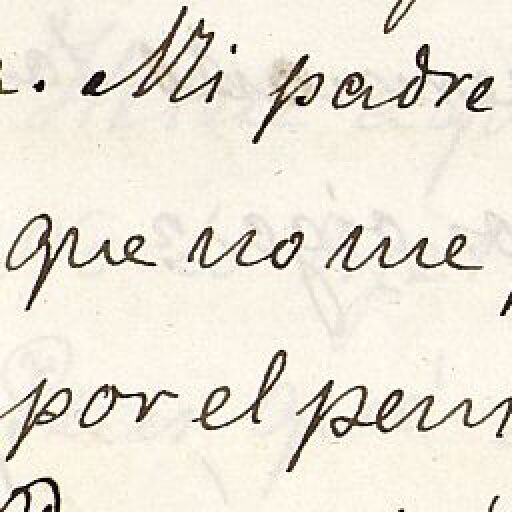 . Mi padre
que no me
por el pen